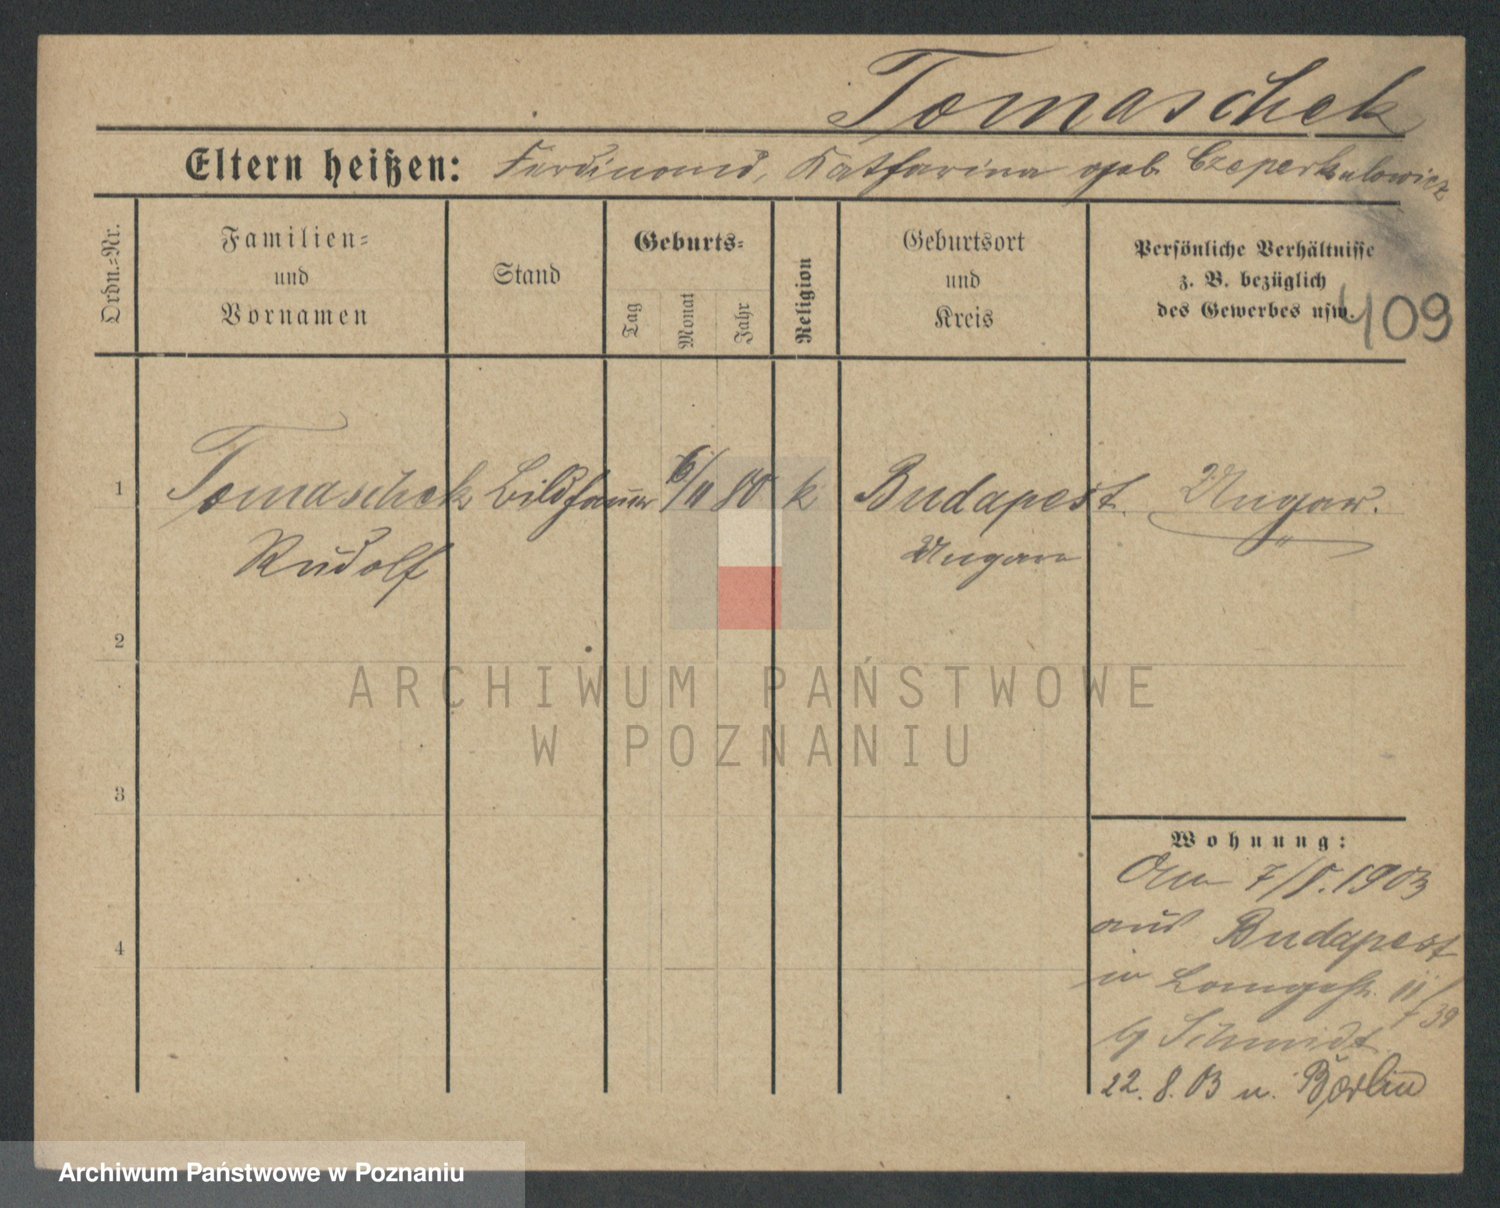 Tomaschek
Eltern heißen: Ferdinand, Katharina geb.
Ordn.-Nr.
Familien-
und
Vornamen
Stand
Geburts-
Tag
Monat
Jahr
Religion
Geburtsort
und
Kreis
Persönliche Verhältnisse
z. B. bezüglich
des Gewerbes usw.
409
1 Tomaschek Bildhauer 6/11 80 k Budapest. Ungar.
Rudolf Ungarn
2
3
4
Wohnung:
Am 7/5. 1903
aus Budapest
in Langestr. 11/
39
Schmidt
22. 8. 03 n. Berlin
ARCHIWUM PAŃSTWOWE
W POZNANIU
Archiwum Państwowe w Poznaniu